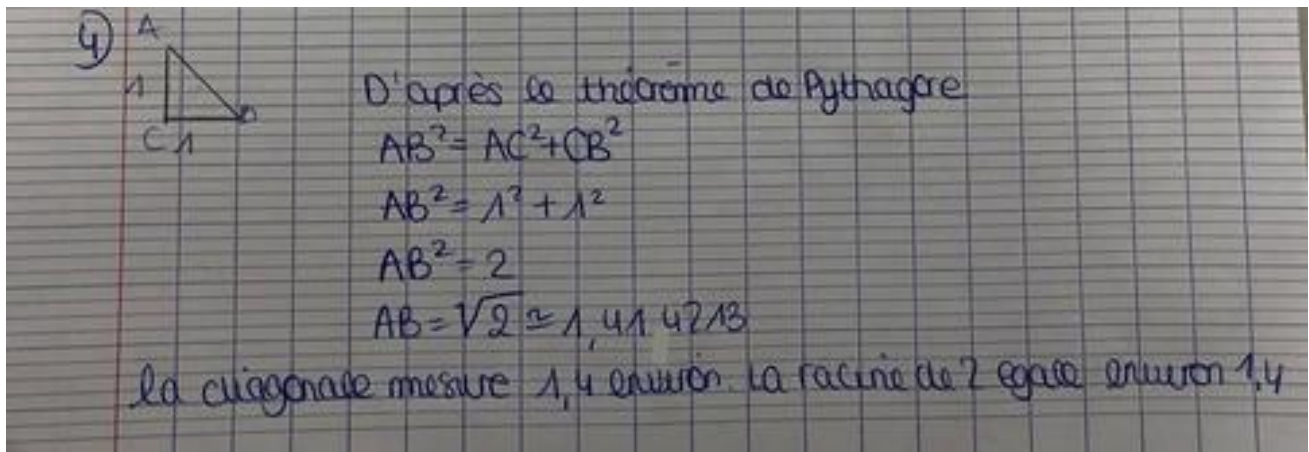 4)
A
1
C 1 B
D'après le théorème de Pythagore
AB² = AC² + CB²
AB² = 1² + 1²
AB² = 2
AB = √2 ≃ 1,414213
la diagonale mesure 1,4 environ. La racine de 2 egale environ 1,4